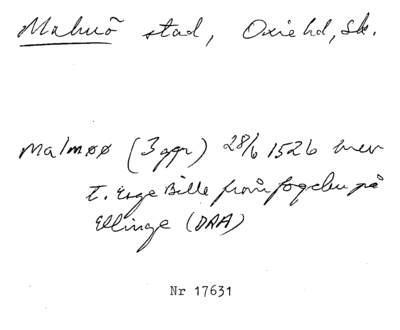 Malmö stad, Oxie hd, Sk.
Malmøø (3 ggr) 28/6 1526 brev
t. Esge Bille från fogden på
Ellinge (DRA)
Nr 17631